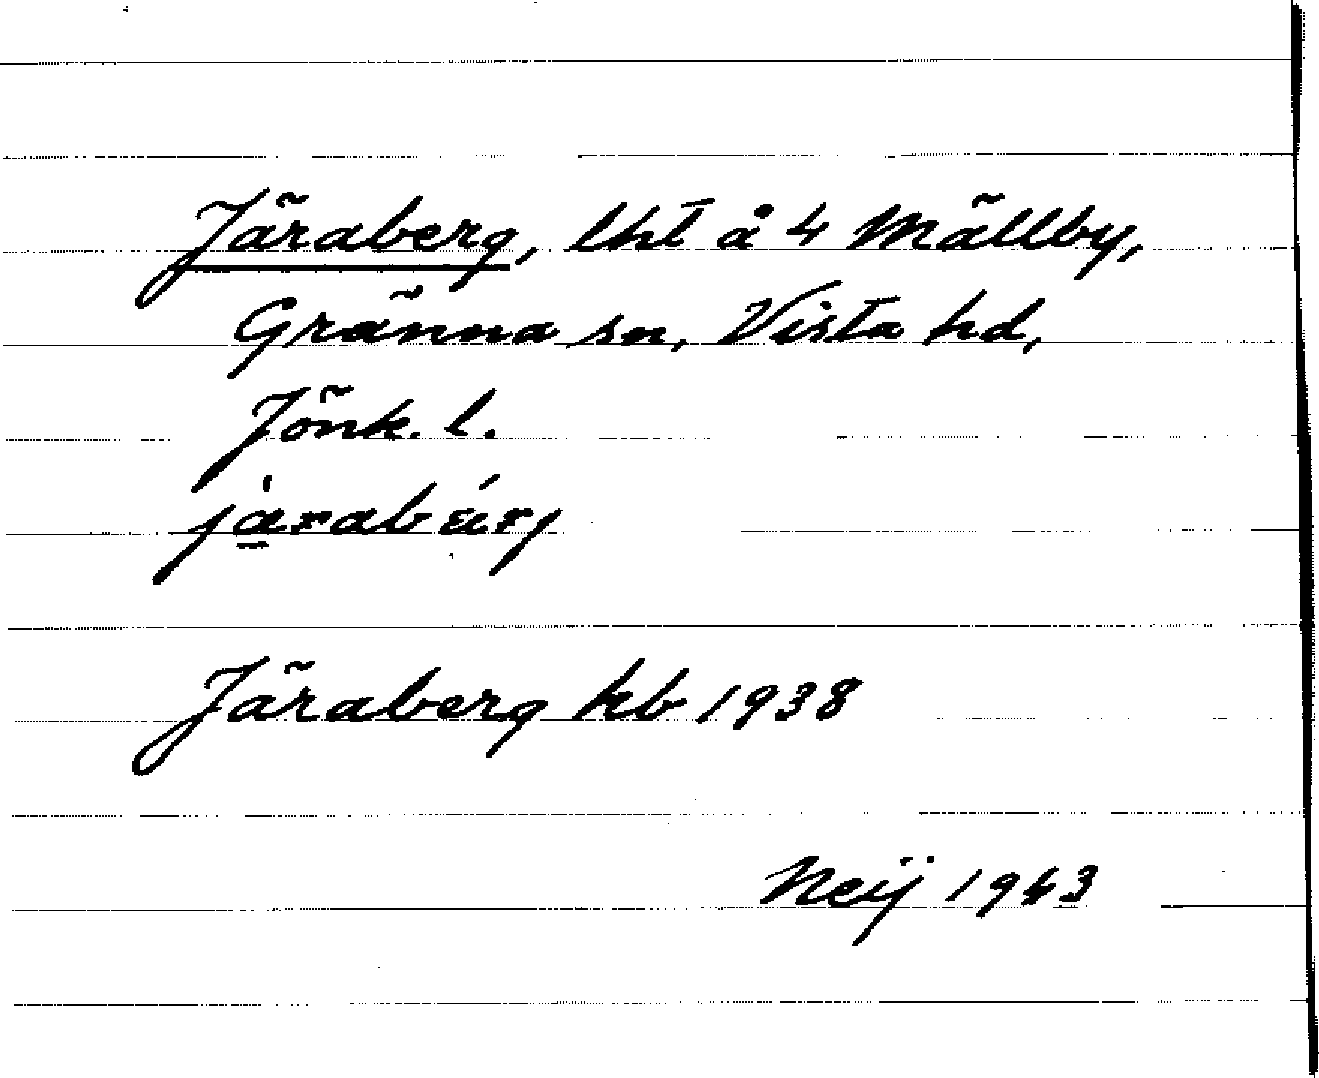 Järaberg, lht å 4 Mällby,
Gränna sn, Vista hd,
Jönk. l.
Järaberg kb 1938
Neij 1943